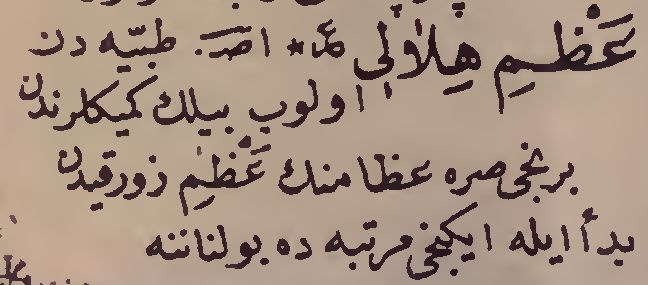 عَظْمِ هِلَالِى ع * اصـ. طبيّه دن
اولوب بيلك كميكلرندن
برنجى صره عظامنك عَظْمِ زورقيدن
بدأ ايله ايكنجى مرتبه ده بولناننه